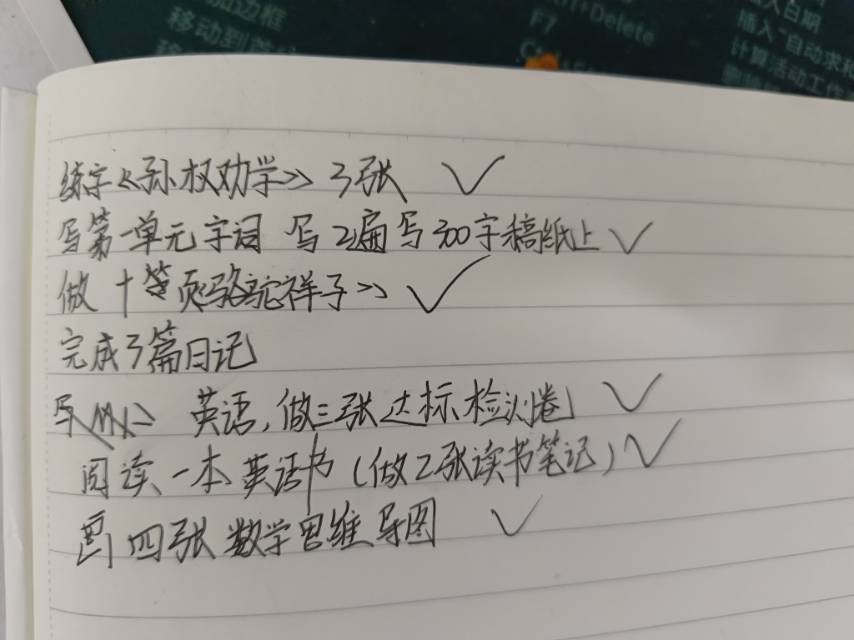 加边框
移动到首
F7
Ctrl+Delete
插入日期
插入"自动求和
计算活动工作
练字《孙权劝学》3张 ✓
写第一单元字词 写2遍写300字稿纸上 ✓
做十 页骆驼祥子》 ✓
完成3篇日记
写 英语,做三张达标检测卷 ✓
阅读一本英语书(做2张读书笔记) ✓
画四张数学思维导图 ✓